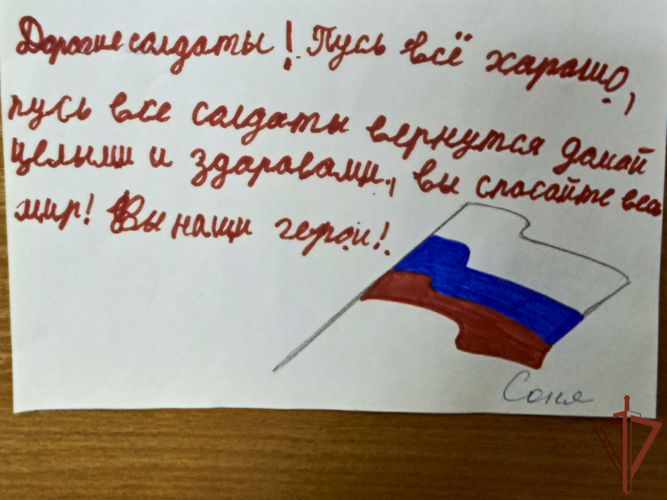 Дорогие салдаты! Пусь всё харошо,
пусь все салдаты вернутся дамой
целыми и здаровами, вы спосайте весь
мир! Вы наши герои!
Соня